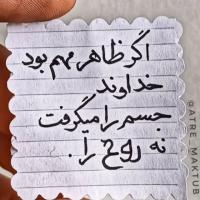 اگر ظاهر مهم بود
خداوند
جسم را میگرفت
نه روح را.
@ATRE_MAKTUB